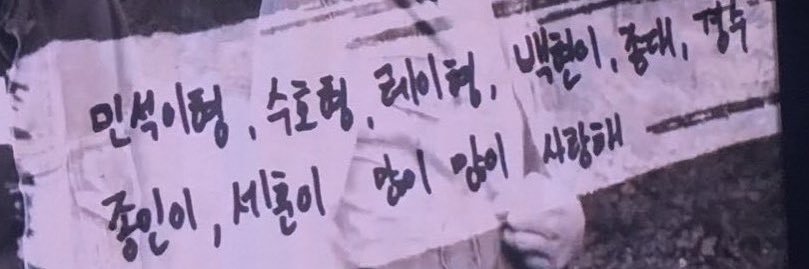 민석이형, 수호형, 레이형, 백현이, 종대, 경수
종인이, 세훈이 많이 많이 사랑해